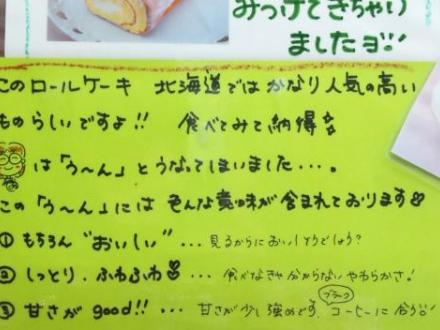 みつけてきちゃい
ましたヨ!!
このロールケーキ 北海道では かなり人気の高い
ものらしいですよ!! 食べてみて納得
は「う〜ん」とうなってしまいました・・・。
この「う〜ん」には そんな意味が含まれております
① もちろん "おいしい" ・・・ 見るからにおいしそうでしょう?
② しっとり、ふわふわ ・・・ 食べなきゃ分からないやわらかさ!
③ 甘さが good!! ・・・ 甘さが少し強めです。ブラックコーヒーに合う